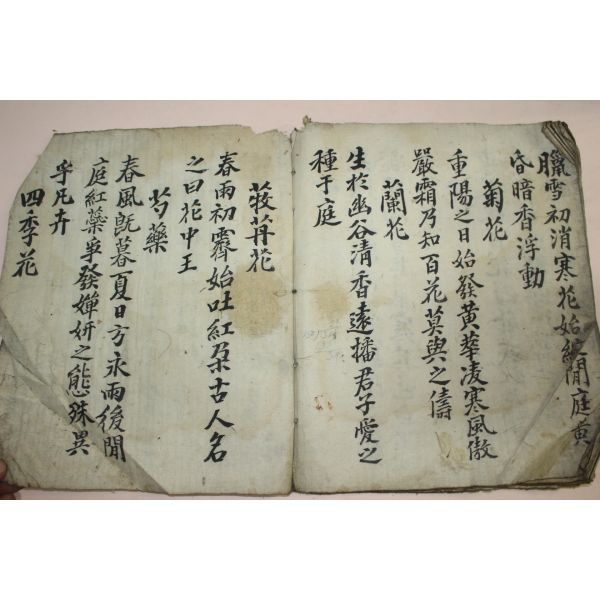 臘雪初消寒花始綻閒庭黃
昏暗香浮動
菊花
重陽之日始發黃華凌寒風傲
嚴霜乃知百花莫與之儔
蘭花
生於幽谷清香遠播君子愛之
種于庭
牧丹花
春雨初霽始吐紅朶古人名
之曰花中王
芍藥
春風旣暮夏日方永雨後閒
庭紅藥爭發嬋姸之態殊異
乎凡卉
四季花